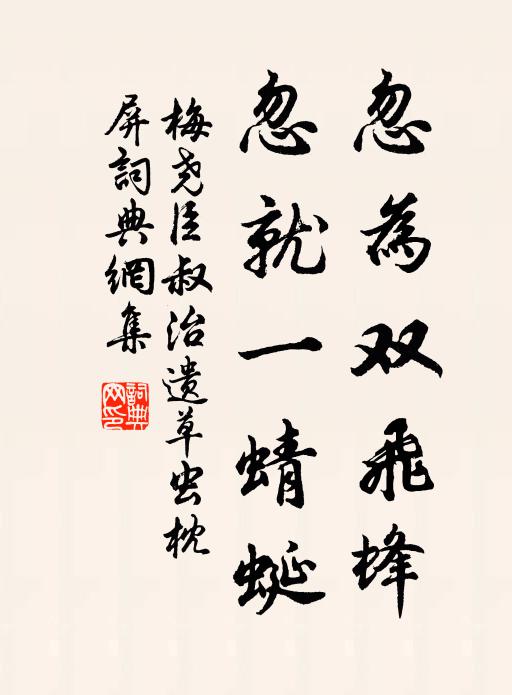 忽為双飛蜂
忽就一蜻蜓
梅尧臣叔治遗草虫枕
屏詞典網集
詞典
网印